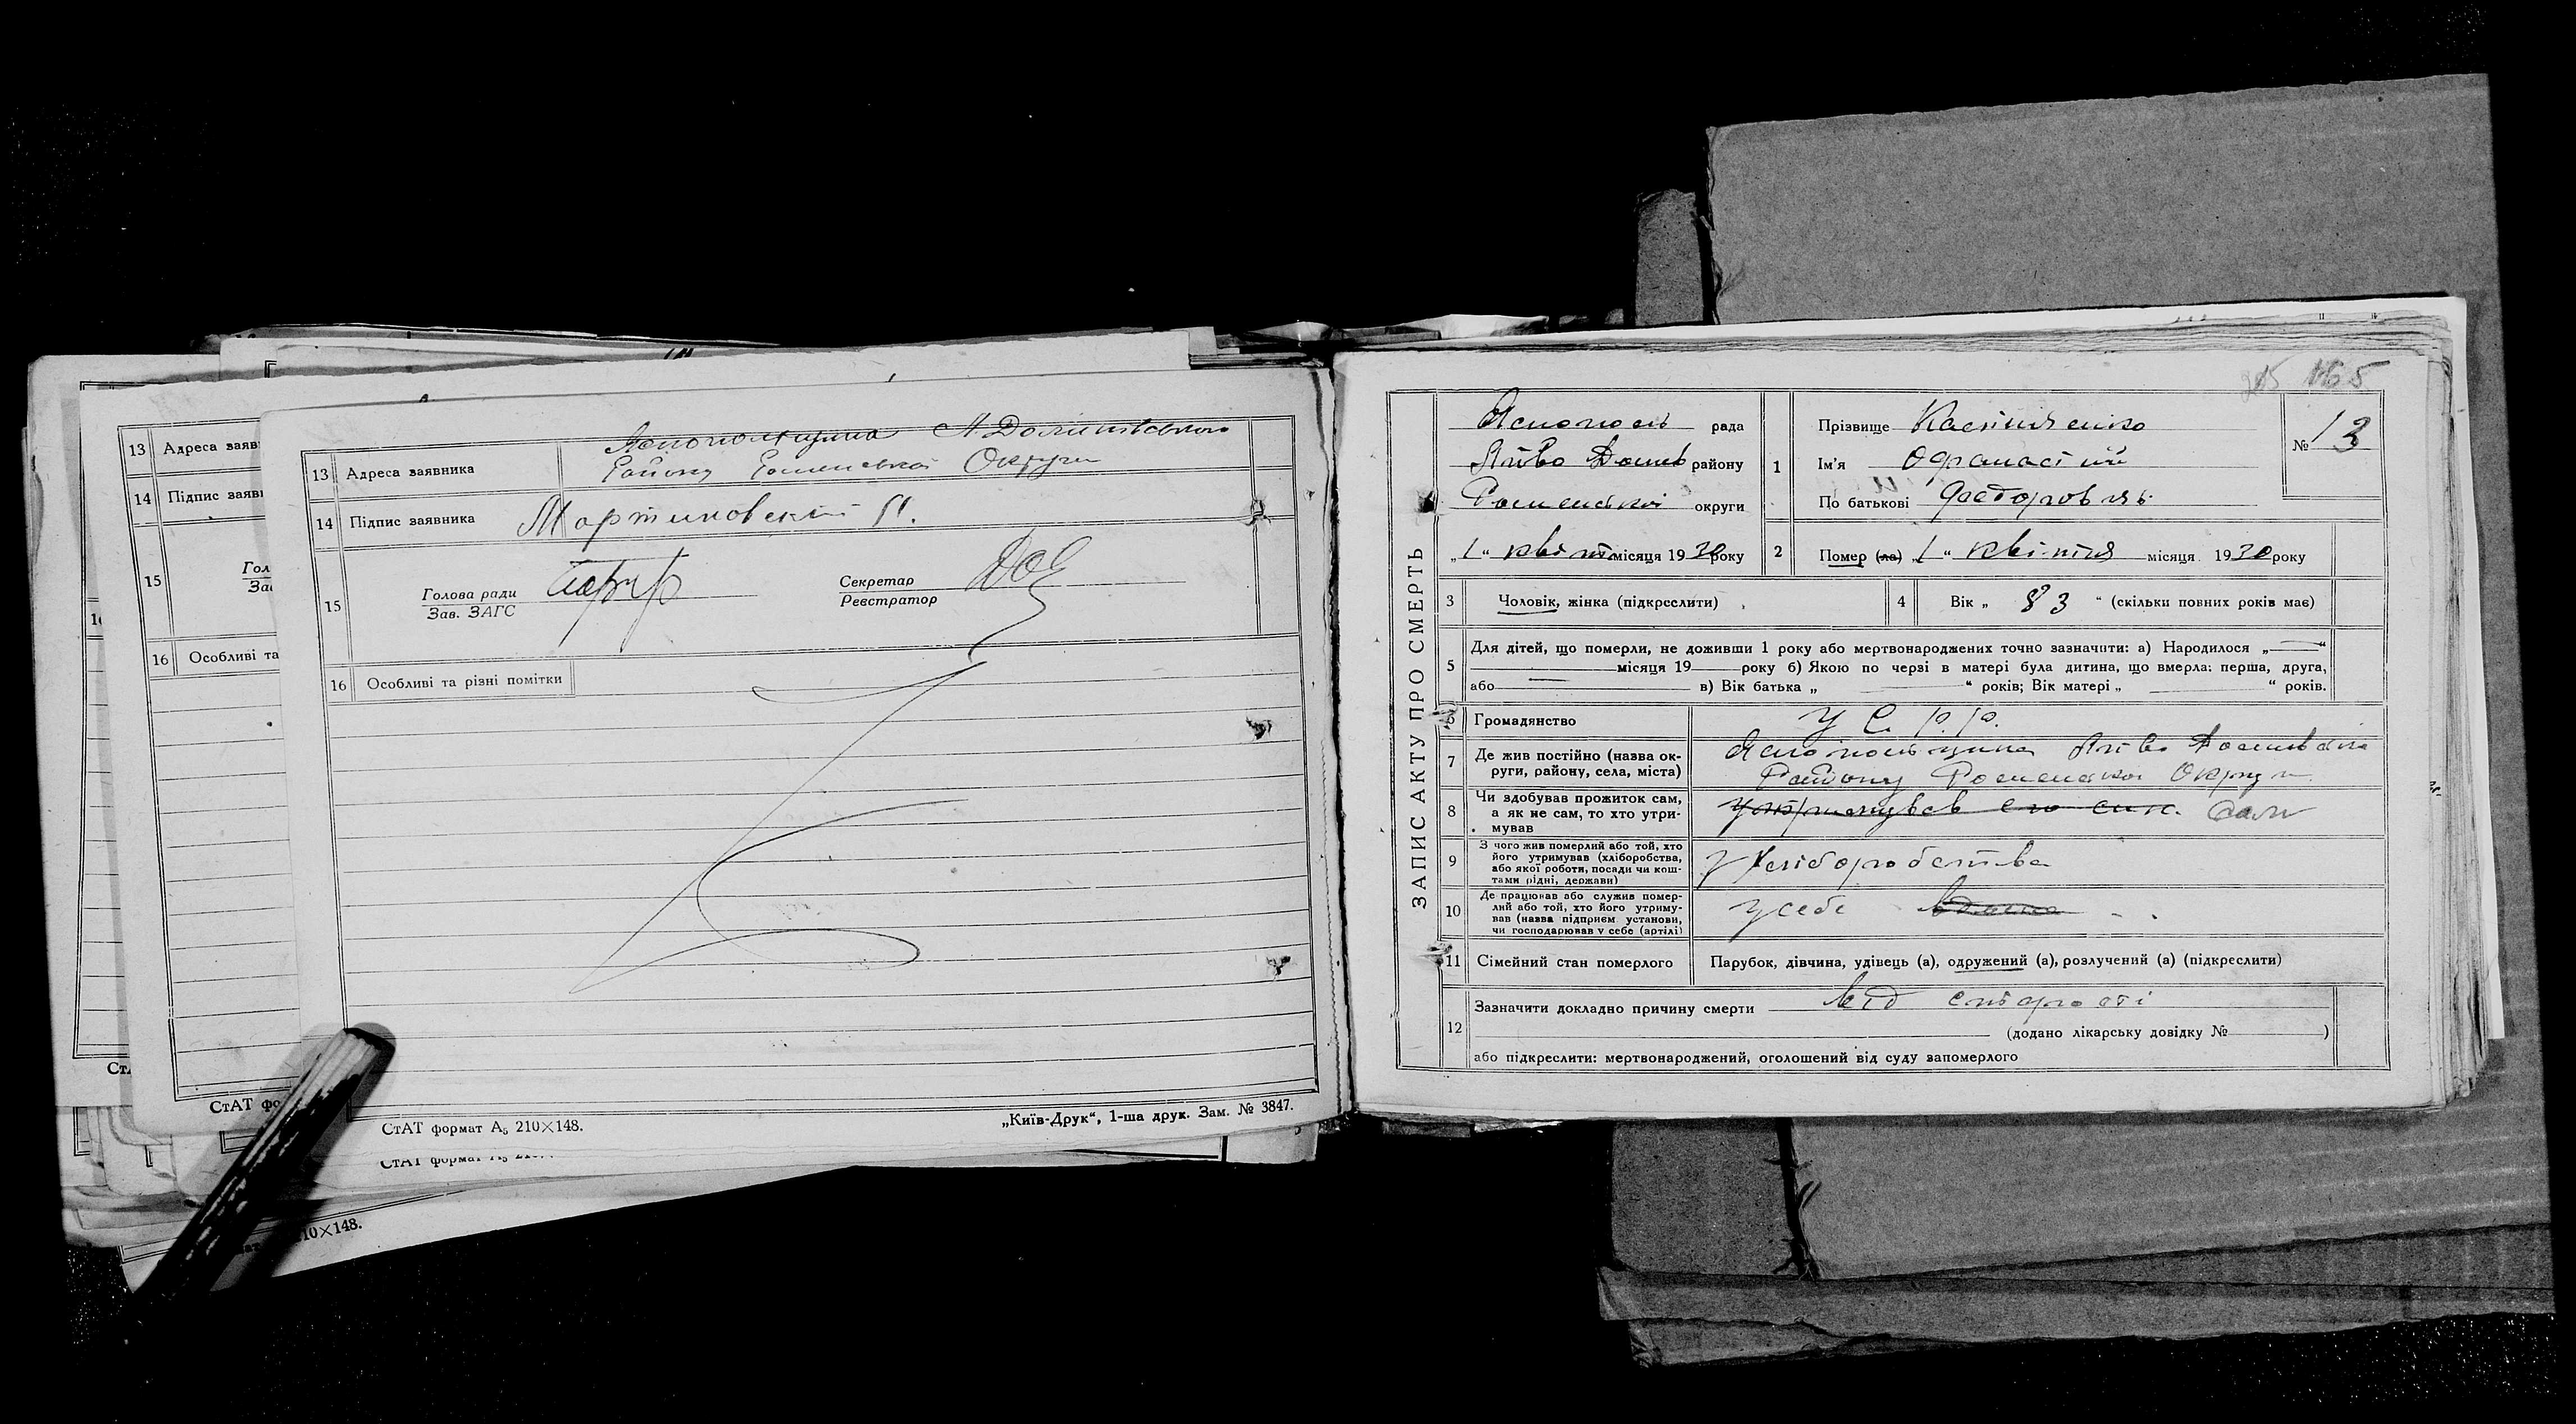 13 Адреса заявника
Району Роменської Округи
14 Підпис заявника Мартиновский П.
15 Голова ради
Зав. ЗАГС
Секретар
Реєстратор
16 Особливі та різні помітки
СтАТ формат А₅ 210×148.
„Київ-Друк“, 1-ша друк. Зам. № 3847.
13 Адреса заяв
14 Підпис заяв
15
16 Особливі та
СтАТ фо
10×148.
165
ЗАПИС АКТУ ПРО СМЕРТЬ
рада
району
Роменської округи
„1“ квітн місяця 1930 року
1 Прізвище
Ім'я Офанасий
По батькові Федорович
№ 13
2 Помер (ла) „1“ квітня місяця 1930 року
3 Чоловік, жінка (підкреслити)
4 Вік „83“ (скільки повних років має)
5 Для дітей, що померли, не доживши 1 року або мертвонароджених точно зазначити: а) Народилося „—“
місяця 19 року б) Якою по черзі в матері була дитина, що вмерла: перша, друга,
або в) Вік батька „ “ років; Вік матері „ “ років.
6 Громадянство У С. Р. Р.
7 Де жив постійно (назва округи, району, села, міста)
Району Роменської Округи
8 Чи здобував прожиток сам,
а як не сам, то хто утри-
мував утримував его син. Сам
9 З чого жив померлий або той, хто
його утримував (хліборобства,
або якої роботи, посади чи кош-
тами рідні, держави) з Хліборобства
10 Де працював або служив помер-
лий або той, хто його утриму-
вав (назва підприєм. установи,
чи господарював у себе (артілі) у себе
11 Сімейний стан померлого Парубок, дівчина, удівець (а), одружений (а), розлучений (а) (підкреслити)
12 Зазначити докладно причину смерти від старості
(додано лікарську довідку № )
або підкреслити: мертвонароджений, оголошений від суду запомерлого